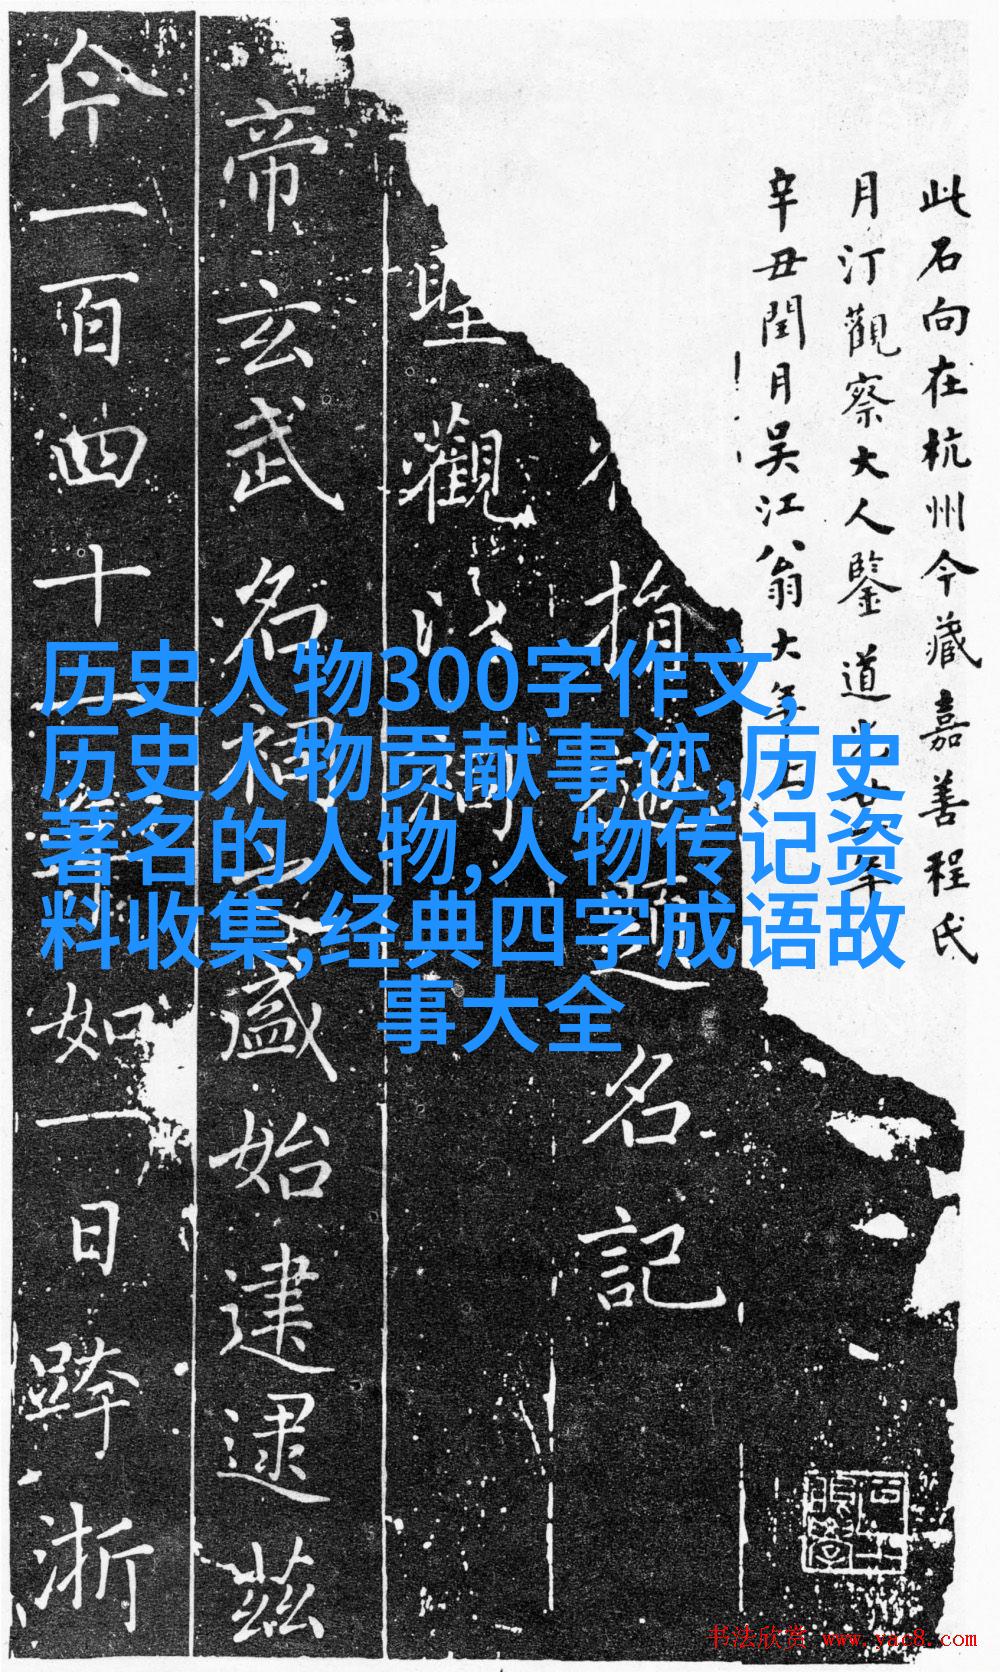 此石向在杭州今藏嘉善程氏
月汀觀察大人鑒道光
辛丑閏月吴江翁大年上
指
名記
聖觀
帝玄武名祠盛始建逮茲
仐一百四十一年如一日跨浙
历史人物300字作文,
历史人物贡献事迹,历史
著名的人物,人物传记资
料收集,经典四字成语故
事大全
书法欣赏 www.yac8.com